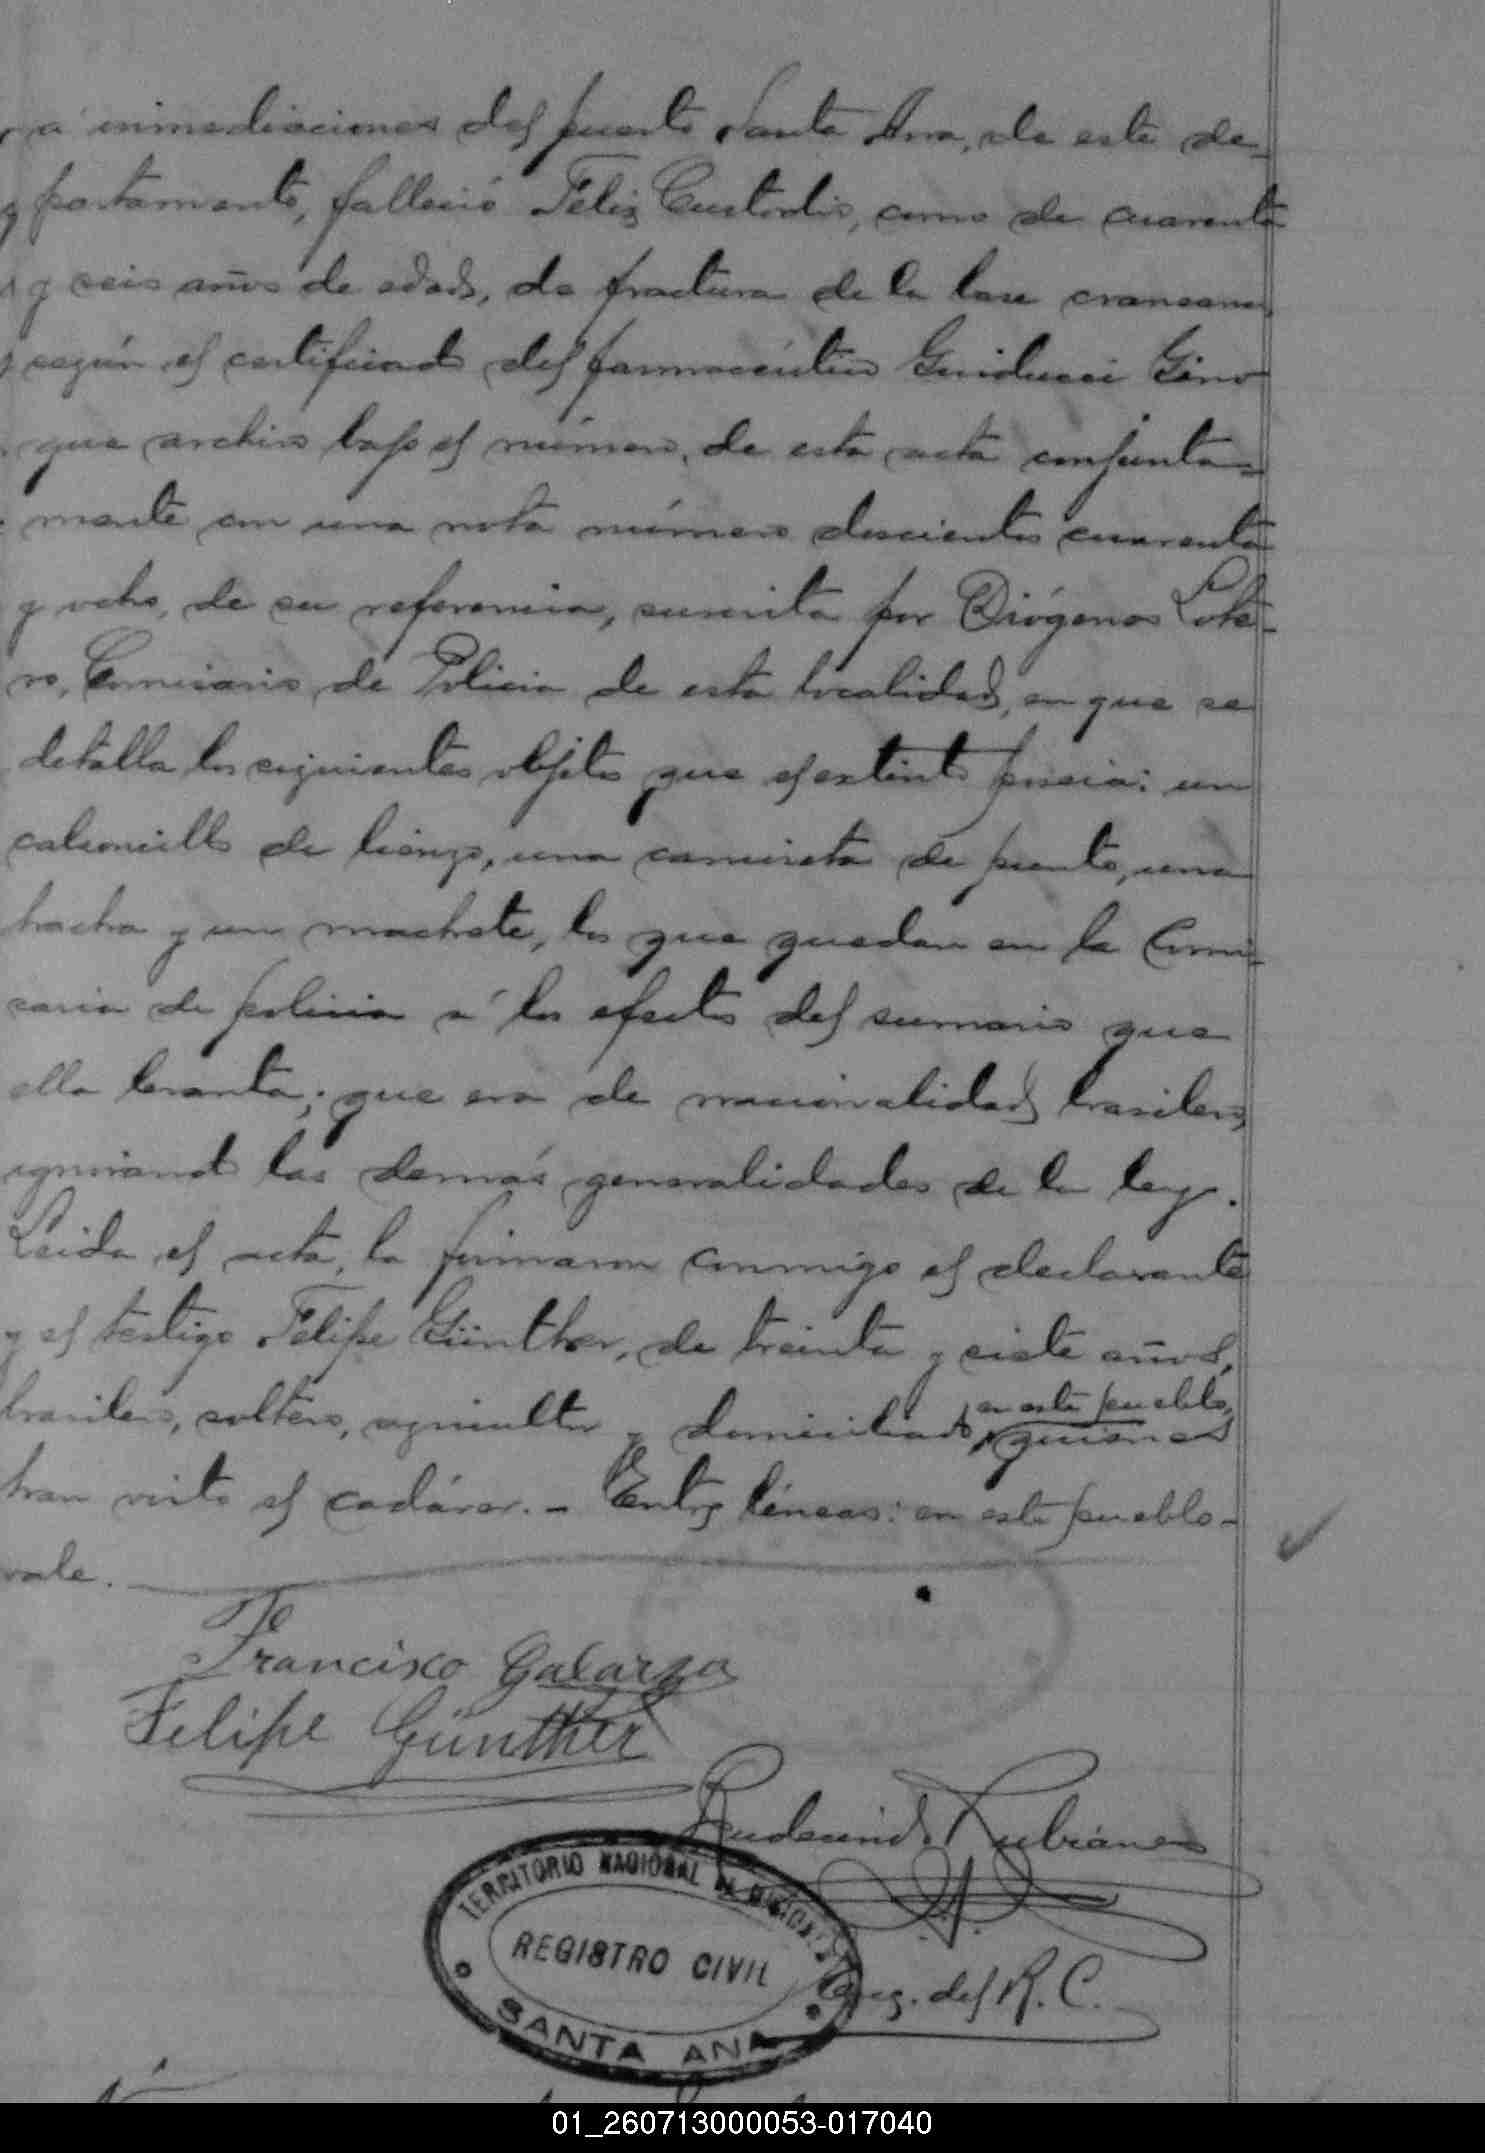 a inmediaciones del puerto Santa Ana, de este de-
partamento, falleció Feliz Custodio, como de cuarenta
y seis años de edad, de fractura de la base craneana
según el certificado del farmacéutico Guiducci Gino
que archivo bajo el número de esta acta conjunta=
mente con una nota número doscientos cuarenta
y ocho, de su referencia, suscrita por Diógenes Lote-
ro, Comisario de Policia de esta localidad, en que se
detalla los siguientes objetos que el extinto poseia: un
calsoncillo de lienzo, una camiseta de punto, una
hacha y un machete, los que quedan en la Comi-
saria de policia á los efectos del sumario que
ella levanta; que era de nacionalidad brasilero,
ignorando las demás generalidades de la ley.
Leida el acta, la firmaron conmigo el declarante
y el testigo Felipe Günther, de treinta y siete años,
brasilero, soltero, agricultor y domiciliado en este pueblo, quienes
han visto el cadáver. - Entre líneas: en este pueblo -
vale.
Francisco Galarza
Felipe Günther
Rudecindo Lubiánes
TERRITORIO NACIONAL DE MISIONES
REGISTRO CIVIL
SANTA ANA
Enc. del R. C.
01_260713000053-017040